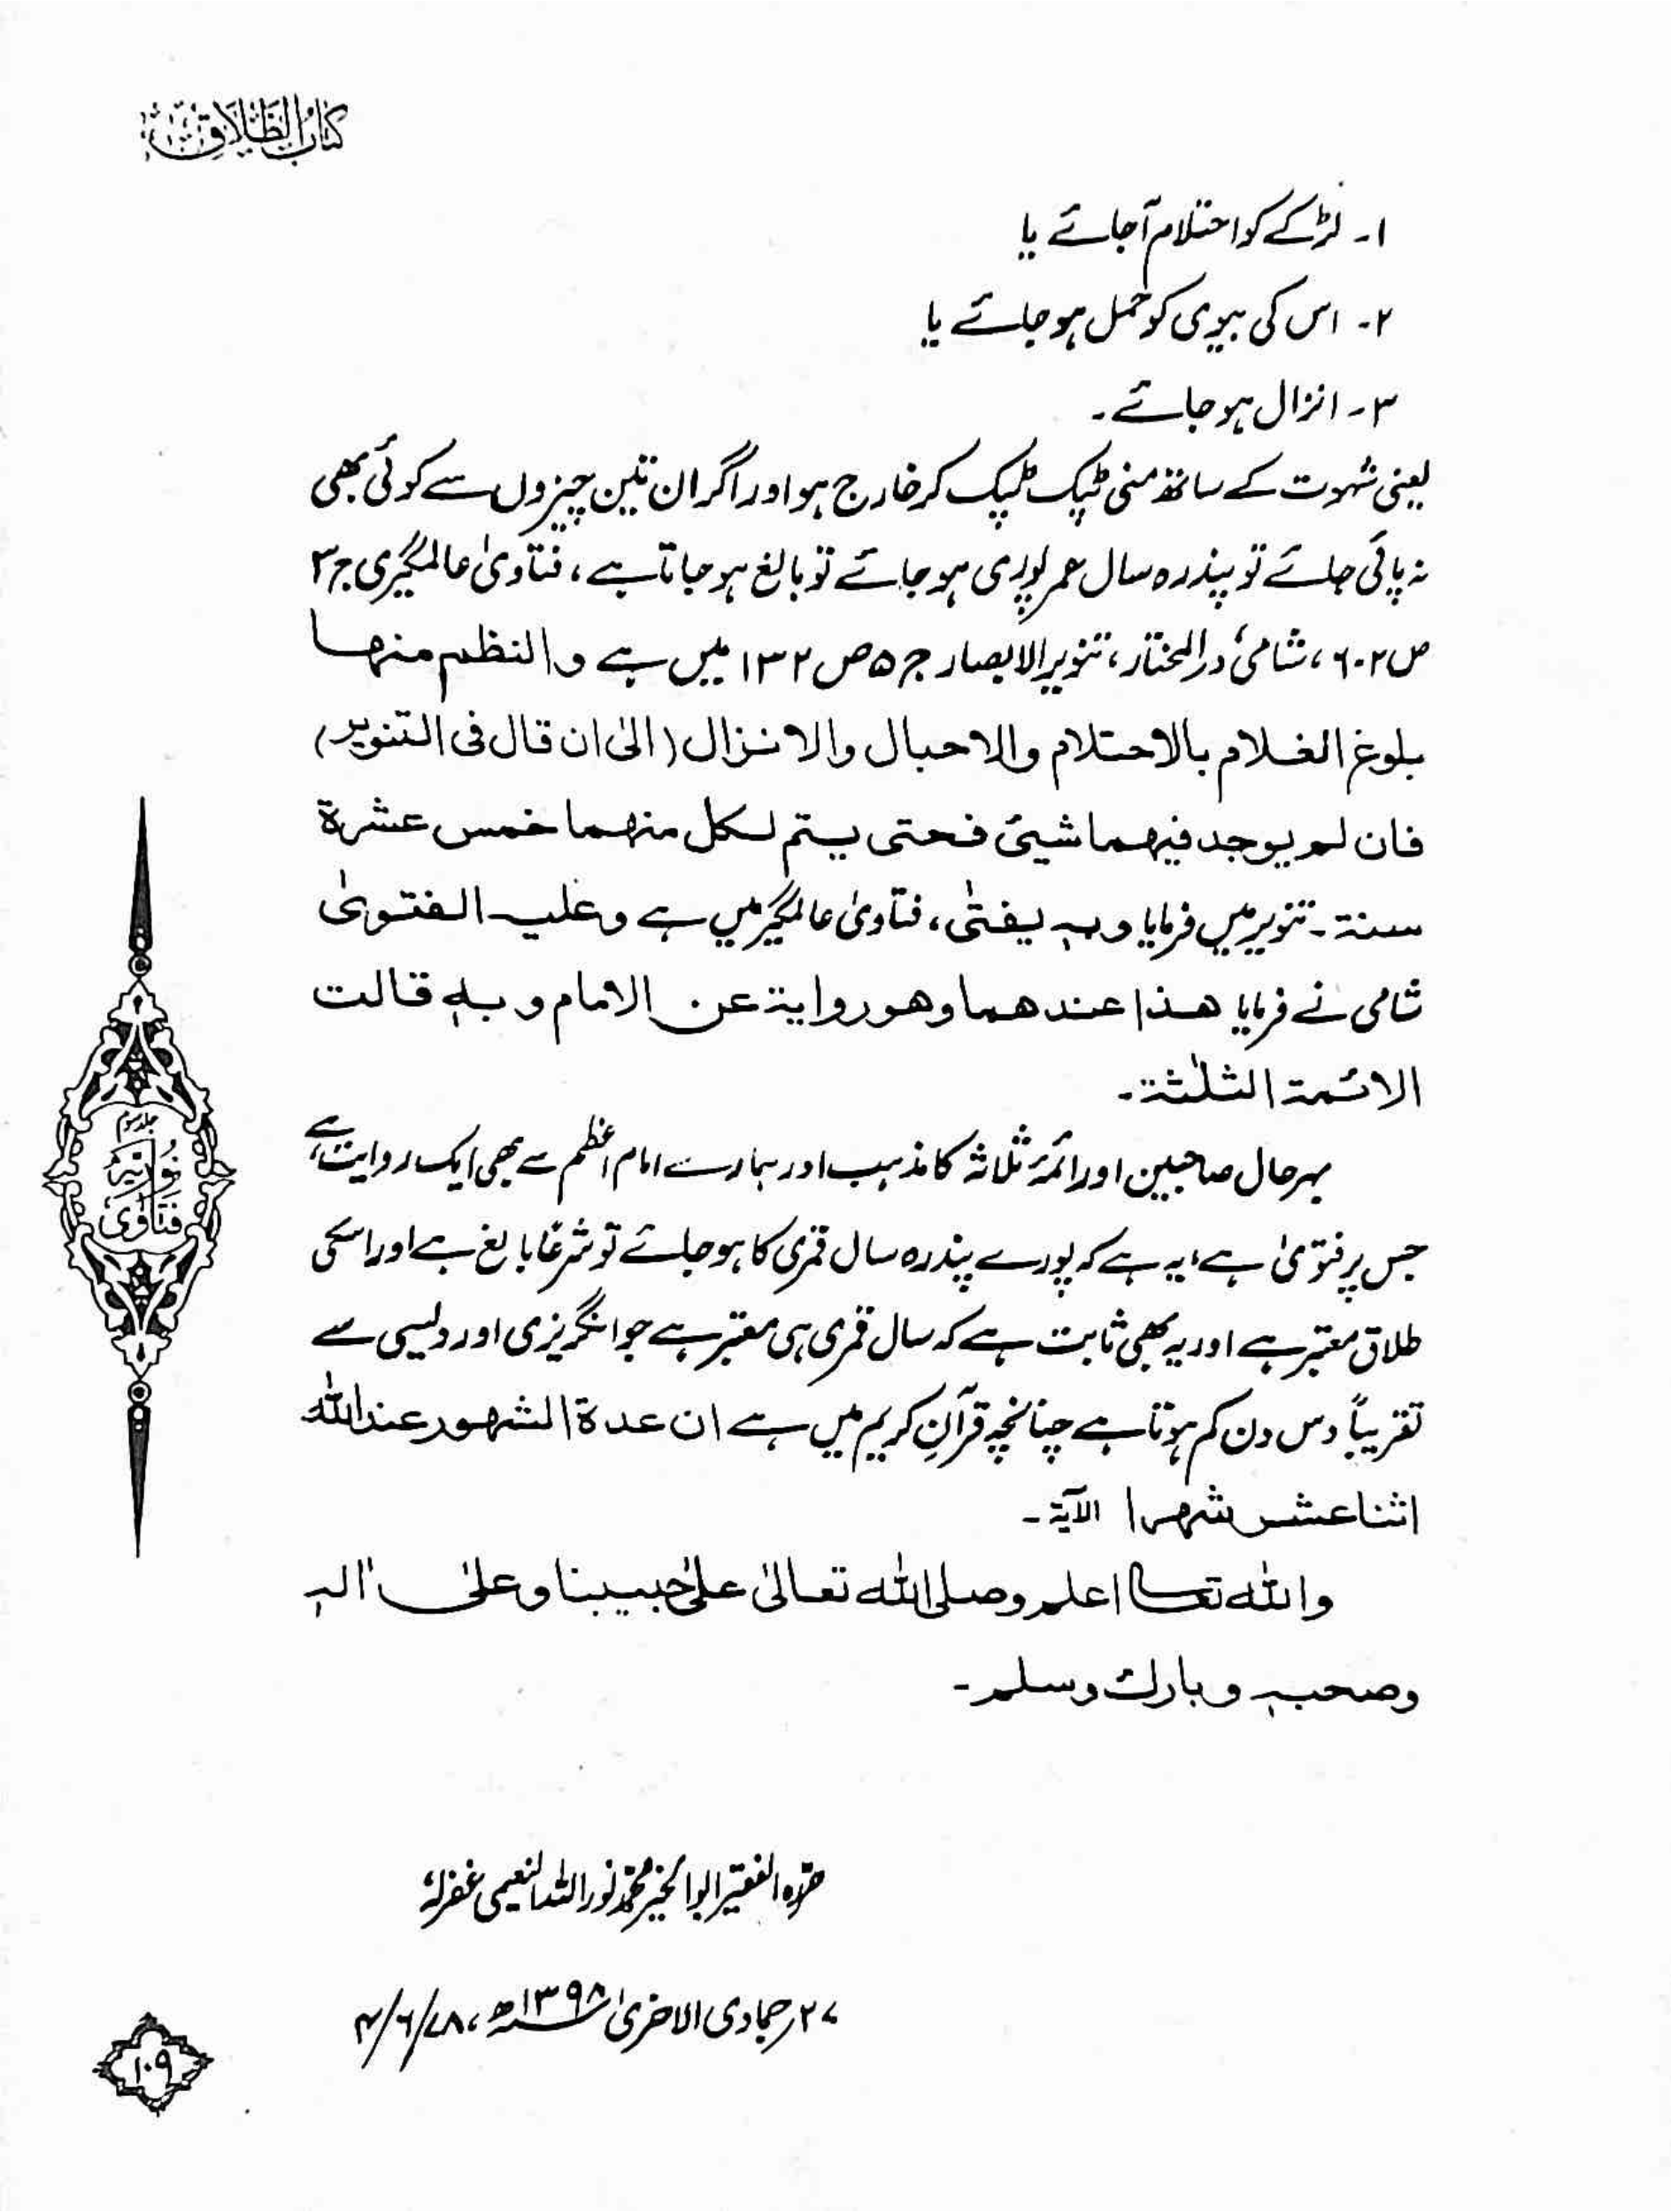 کتاب الطلاق
۱۔ لڑکے کو احتلام آجائے یا
۲۔ اس کی بیوی کو حمل ہو جائے یا
۳۔ انزال ہو جائے۔
یعنی شہوت کے ساتھ منی ٹپک ٹپک کر خارج ہو اور اگر ان تین چیزوں سے کوئی بھی
نہ پائی جائے تو پندرہ سال عمر پوری ہو جائے تو بالغ ہو جاتا ہے، فتاویٰ عالمگیری ج ۳
ص ۶۰۲، شامی، در المختار، تنویر الابصار ج ۵ ص ۱۳۲ میں ہے والنظم منہا
بلوغ الغلام بالاحتلام والاحبال والانزال (الیٰ ان قال فی التنویر)
فان لم یوجد فیہما شیئ فحتی یتم لکل منہما خمس عشرۃ
سنۃ۔ تنویر میں فرمایا وبہ یفتٰی، فتاویٰ عالمگیر میں ہے وعلیہ الفتویٰ
شامی نے فرمایا ھذا عندھما وھو روایۃ عن الامام و بہ قالت
الائمۃ الثلٰثۃ۔
بہرحال صاحبین اور ائمۂ ثلاثہ کا مذہب اور ہمارے امام اعظم سے بھی ایک روایت ہے،
جس پر فتویٰ ہے، یہ ہے کہ پورے پندرہ سال قمری کا ہو جائے تو شرعًا بالغ ہے اور اسکی
طلاق معتبر ہے اور یہ بھی ثابت ہے کہ سال قمری ہی معتبر ہے جو انگریزی اور دیسی سے
تقریباً دس دن کم ہوتا ہے چنانچہ قرآنِ کریم میں ہے ان عدۃ الشہور عنداللہ
اثنا عشر شہرا الآیۃ۔
واللہ تعالیٰ اعلم وصلی اللہ تعالیٰ علیٰ حبیبنا وعلیٰ اٰلہ
وصحبہ وبارك وسلم۔
حررہ الفقیر ابوالخیر محمد نور اللہ النعیمی غفرلہٗ
۲۷ جمادی الاخریٰ ۱۳۹۸ھ، ۴/۶/۷۸
جلد سوم
فتاویٰ نوریہ
۱۰۹